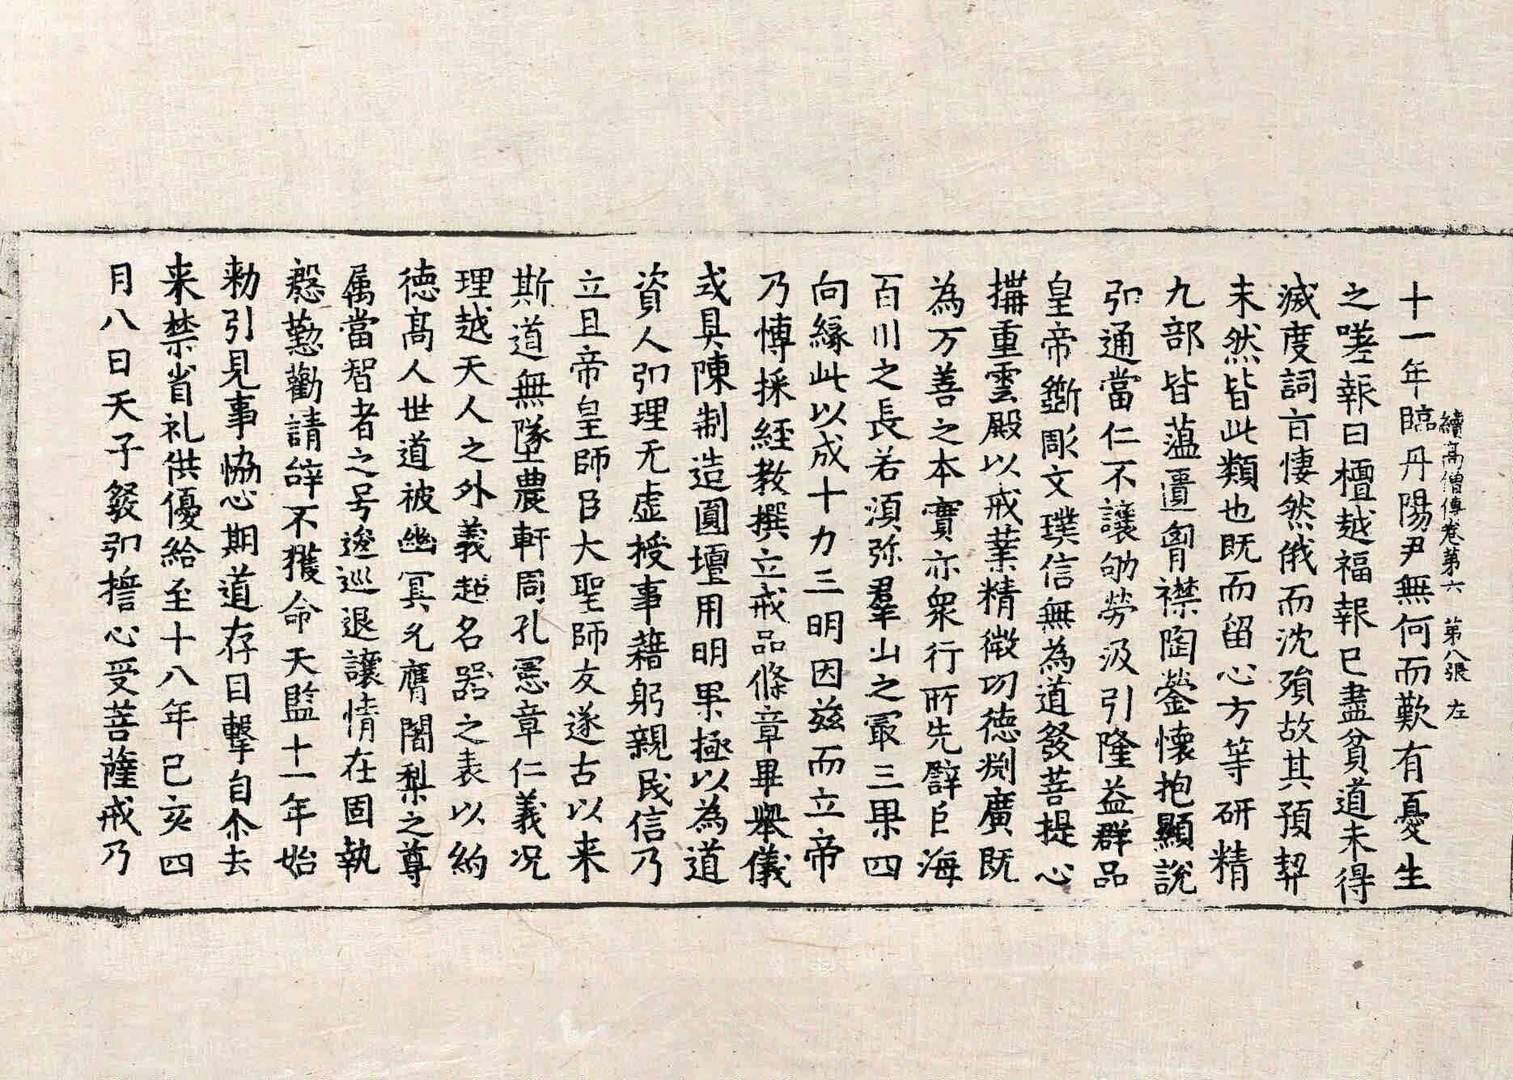 續高僧傳卷第六　第八張　左
十一年臨丹陽尹無何而歎有憂生
之嗟報曰檀越福報已盡貧道未得
滅度詞旨悽然俄而沈殞故其預契
未然皆此類也既而留心方等研精
九部皆薀匱胷襟陶鎣懷抱顯說
弘通當仁不讓劬勞汲引隆益群品
皇帝斵彫文璞信無為道發菩提心
搆重雲殿以戒業精微功德渕廣既
為万善之本實亦衆行所先譬巨海
百川之長若湏弥羣山之冣三果四
向縁此以成十力三明因茲而立帝
乃愽採經教撰立戒品條章畢舉儀
式具陳制造圓壇用明果極以為道
資人弘理无虚授事藉躬親民信乃
立且帝皇師臣大聖師友遂古以来
斯道無墜農軒周孔憲章仁義况
理越天人之外義超名器之表以約
德髙人世道被幽冥允膺闍梨之尊
属當智者之号逡巡退讓情在固執
慇懃勸請辞不獲命天監十一年始
勑引見事恊心期道存目擊自尒去
来禁省礼供優給至十八年己亥四
月八日天子發弘誓心受菩薩戒乃